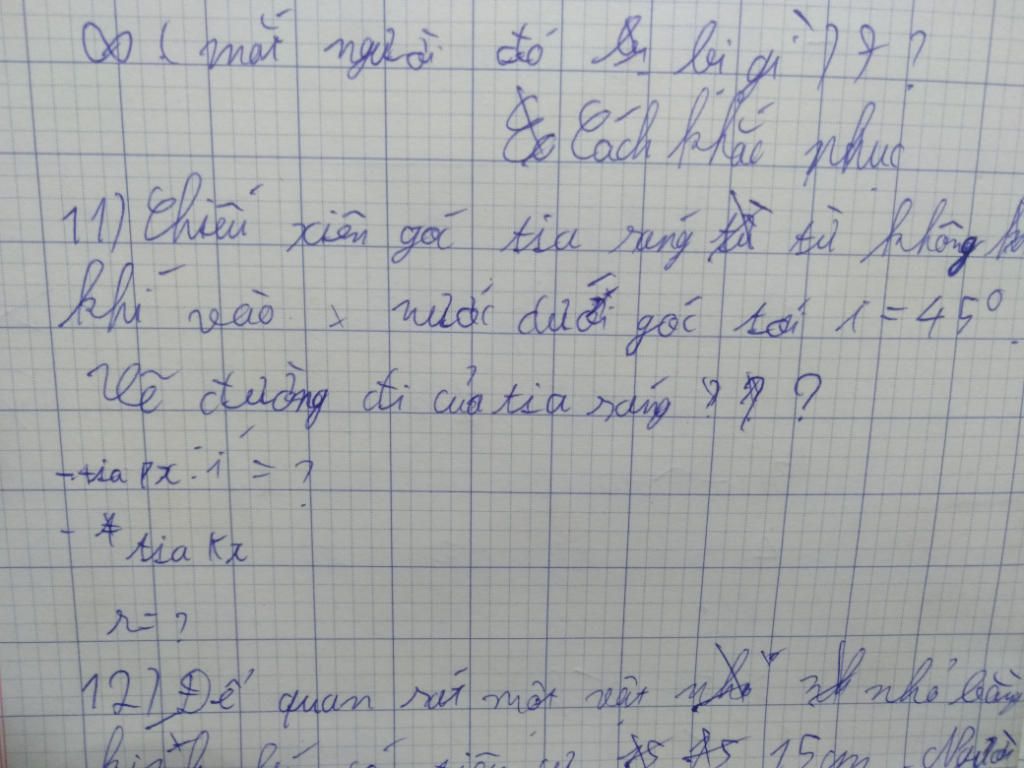 mắt người đó bị gì ? ? ?
Cách khắc phục
11) Chiếu xiên góc tia sáng từ không
khí vào nước dưới góc tới i = 45°
Vẽ đường đi của tia sáng ? ? ?
- tia px : i' = ?
- * tia kx
r = ?
12) Để quan sát một vật nhỏ bằng
15cm. Người